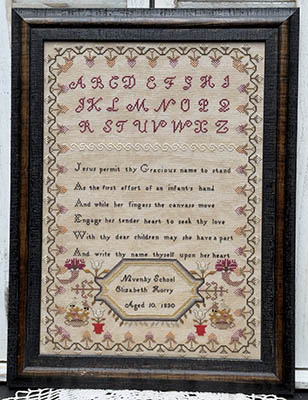 A B C D E F G H I
J K L M N O P Q
R S T U V W X Z
Jesus permit thy Gracious name to stand
As the first effort of an infant's hand
And while her fingers the canvass move
Engage her tender heart to seek thy love
With thy dear children may she have a part
And write thy name thyself upon her heart
Navenby School
Elizabeth Horry
Aged 10. 1830